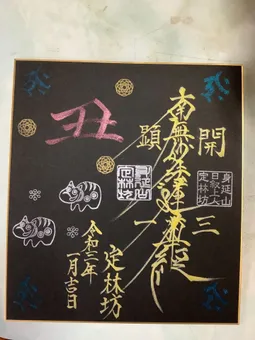 開三
身延山
定林坊
南無妙法蓮華経
顕一
身延山
定林坊
丑
定林坊
令和三年
一月吉日